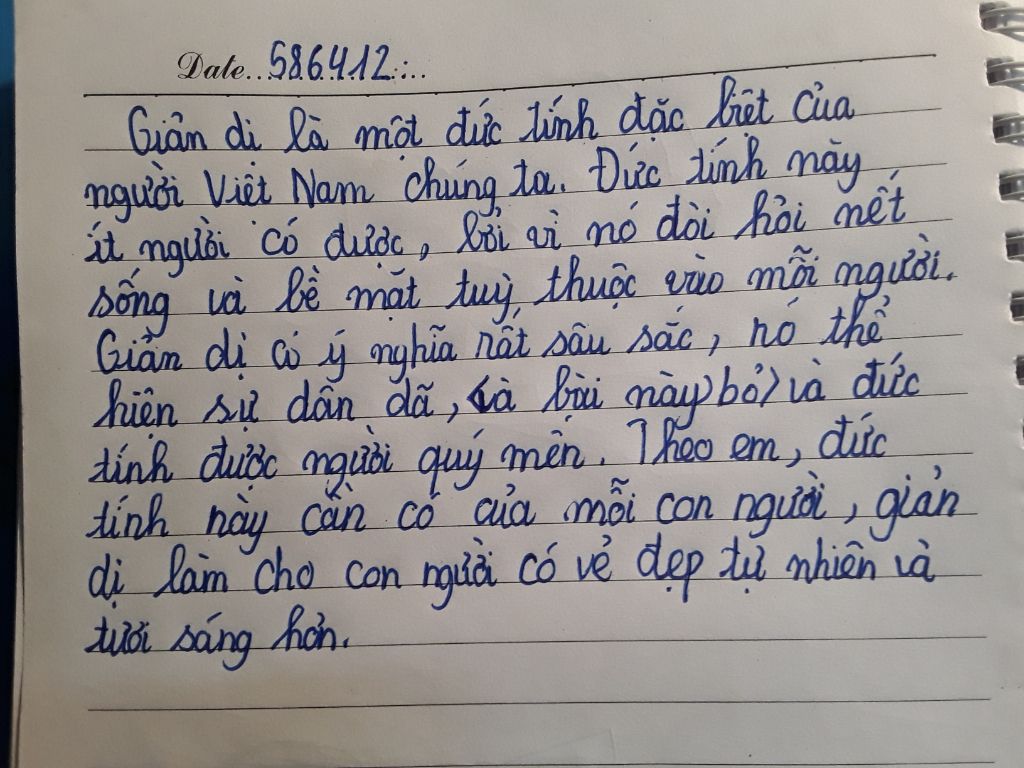 Date..586412....
Giản dị là một đức tính đặc biệt của
người Việt Nam chúng ta. Đức tính này
ít người có được, bởi vì nó đòi hỏi nết
sống và bề mặt tuỳ thuộc vào mỗi người.
Giản dị có ý nghĩa rất sâu sắc, nó thể
hiện sự dân dã, (và bài này) bỏ) và đức
tính được người quý mến. Theo em, đức
tính này cần có của mỗi con người, giản
dị làm cho con người có vẻ đẹp tự nhiên và
tươi sáng hơn.